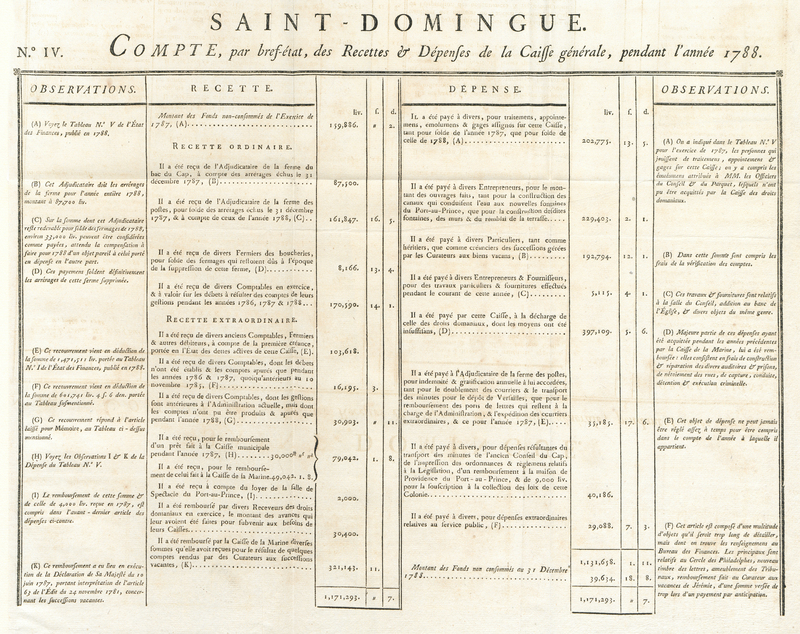 SAINT-DOMINGUE.
N.º IV. COMPTE, par bref-état, des Recettes & Dépenses de la Caisse générale, pendant l'année 1788.
OBSERVATIONS.
(A) Voyez le Tableau N.º V de l'État
des Finances, publié en 1788.
(B) Cet Adjudicataire doit les arrérages
de la ferme pour l'année entière 1788,
montant à 87,700 liv.
(C) Sur la somme dont cet Adjudicataire
reste redevable pour solde des fermages de 1788,
environ 33,000 liv. peuvent être considérées
comme payées, attendu la compensation à
faire pour 1788 d'un objet pareil à celui porté
en dépense en l'autre part.
(D) Ces payemens soldent définitivement
les arrérages de cette ferme supprimée.
(E) Ce recouvrement vient en déduction de
la somme de 1,471,511 liv. portée au Tableau
N.º I de l'État des Finances, publié en 1788.
(F) Ce recouvrement vient en déduction
de la somme de 601,741 liv. 4 s. 6 den. portée
au Tableau susmentionné.
(G) Ce recouvrement répond à l'article
laissé pour Mémoire, au Tableau ci-dessus
mentionné.
(H) Voyez les Observations I & K de la
Dépense du Tableau N.º V.
(I) Le remboursement de cette somme &
de celle de 4,000 liv. reçue en 1787, est
compris dans l'avant-dernier article des
dépenses ci-contre.
(K) Ce remboursement a eu lieu en exécution
de la Déclaration de Sa Majesté du 10
juin 1787, portant interprétation de l'article
63 de l'Édit du 24 novembre 1781, concernant
les successions vacantes.
RECETTE.
liv. s. d.
Montant des Fonds non-consommés de l'Exercice de
1787, (A) 159,886. " 2.
RECETTE ORDINAIRE.
Il a été reçu de l'Adjudicataire de la ferme du
bac du Cap, à compte des arrérages échus le 31
décembre 1787, (B) 87,500.
Il a été reçu de l'Adjudicataire de la ferme des
postes, pour solde des arrérages échus le 31 décembre
1787, & à compte de ceux de l'année 1788, (C) 161,847. 16. 5.
Il a été reçu de divers Fermiers des boucheries,
pour solde des fermages qui restoient dûs à l'époque
de la suppression de cette ferme, (D) 8,166. 13. 4.
Il a été reçu de divers Comptables en exercice,
& à valoir sur les débets à résulter des comptes de leurs
gestions pendant les années 1786, 1787 & 1788 170,590. 14. 1.
RECETTE EXTRAORDINAIRE.
Il a été reçu de divers anciens Comptables, Fermiers
& autres débiteurs, à compte de la première créance,
portée en l'État des dettes actives de cette Caisse, (E) 103,618.
Il a été reçu de divers Comptables, dont les débets
n'ont été établis & les comptes apurés que pendant
les années 1786 & 1787, quoiqu'antérieurs au 10
novembre 1785, (F) 16,195. 3.
Il a été reçu de divers Comptables, dont les gestions
sont antérieures à l'Administration actuelle, mais dont
les comptes n'ont pu être produits & apurés que
pendant l'année 1788, (G) 30,903. " 11.
Il a été reçu, pour le remboursement
d'un prêt fait à la Caisse municipale
pendant l'année 1787, (H) 30,000
Il a été reçu, pour le remboursement
de celui fait à la Caisse de la Marine. 49,042. 1. 8. 79,042. 1. 8.
Il a été reçu à compte du loyer de la salle de
Spectacle du Port-au-Prince, (I) 2,000.
Il a été remboursé par divers Receveurs des droits
domaniaux en exercice, le montant des avances qui
leur avoient été faites pour subvenir aux besoins de
leurs Caisses 30,400.
Il a été remboursé par la Caisse de la Marine diverses
sommes qu'elle avoit reçues pour le résultat de quelques
comptes rendus par des Curateurs aux successions
vacantes, (K) 321,143. 11.
1,171,293. " 7.
DÉPENSE.
liv. s. d.
IL a été payé à divers, pour traitemens, appointemens,
émolumens & gages assignés sur cette Caisse,
tant pour solde de l'année 1787, que pour solde de
celle de 1788, (A) 202,775. 13. 5.
Il a été payé à divers Entrepreneurs, pour le montant
des ouvrages faits, tant pour la construction des
canaux qui conduisent l'eau aux nouvelles fontaines
du Port-au-Prince, que pour la construction desdites
fontaines, des murs & du remblai de la terrasse 229,403. 2. 1.
Il a été payé à divers Particuliers, tant comme
héritiers, que comme créanciers des successions gérées
par les Curateurs aux biens vacans, (B) 192,794. 12. 1.
Il a été payé à divers Entrepreneurs & Fournisseurs,
pour des travaux particuliers & fournitures effectués
pendant le courant de cette année, (C) 5,115. 4. 1.
Il a été payé par cette Caisse, à la décharge de
celle des droits domaniaux, dont les moyens ont été
insuffisans, (D) 397,109. 5. 6.
Il a été payé à l'Adjudicataire de la ferme des postes,
pour indemnité & gratification annuelle à lui accordées,
tant pour le doublement des courriers & le transport
des minutes pour le dépôt de Versailles, que pour le
remboursement des ports de lettres qui restent à la
charge de l'Administration, & l'expédition des courriers
extraordinaires, & ce pour l'année 1787, (E) 35,185. 17. 6.
Il a été payé à divers, pour dépenses résultantes du
transport des minutes de l'ancien Conseil du Cap,
de l'impression des ordonnances & règlemens relatifs
à la Législation, d'un remboursement à la maison de
Providence du Port-au-Prince, & de 9,000 liv.
pour la souscription à la collection des loix de cette
Colonie 40,186.
Il a été payé à divers, pour dépenses extraordinaires
relatives au service public, (F) 29,088. 7. 3.
1,131,658. 1. 11.
Montant des Fonds non consommés au 31 Décembre
1788 39,634. 18. 8.
1,171,293. " 7.
OBSERVATIONS.
(A) On a indiqué dans le Tableau N.º V
pour l'exercice de 1787, les personnes qui
jouissent de traitemens, appointemens &
gages sur cette Caisse; on y a compris les
émolumens attribués à MM. les Officiers
du Conseil & du Parquet, lesquels n'ont
pu être acquittés par la Caisse des droits
domaniaux.
(B) Dans cette somme sont compris les
frais de la vérification des comptes.
(C) Ces travaux & fournitures sont relatifs
à la salle du Conseil, addition au banc de
l'Église, & divers objets du même genre.
(D) Majeure partie de ces dépenses ayant
été acquittée pendant les années précédentes
par la Caisse de la Marine, lui a été remboursée:
elles consistent en frais de construction
& réparation des divers auditoires & prisons,
de nétoiement des rues, de capture, conduite,
détention & exécution criminelle.
(E) Cet objet de dépense ne peut jamais
être réglé assez à temps pour être compris
dans le compte de l'année à laquelle il
appartient.
(F) Cet article est composé d'une multitude
d'objets qu'il seroit trop long de détailler,
mais dont on trouve les renseignemens au
Bureau des Finances. Les principaux sont
relatifs au Cercle des Philadelphes, nouveau
timbre des lettres, ameublement des Tribunaux,
remboursement fait au Curateur aux
vacances de Jérémie, d'une somme versée de
trop lors d'un payement par anticipation.